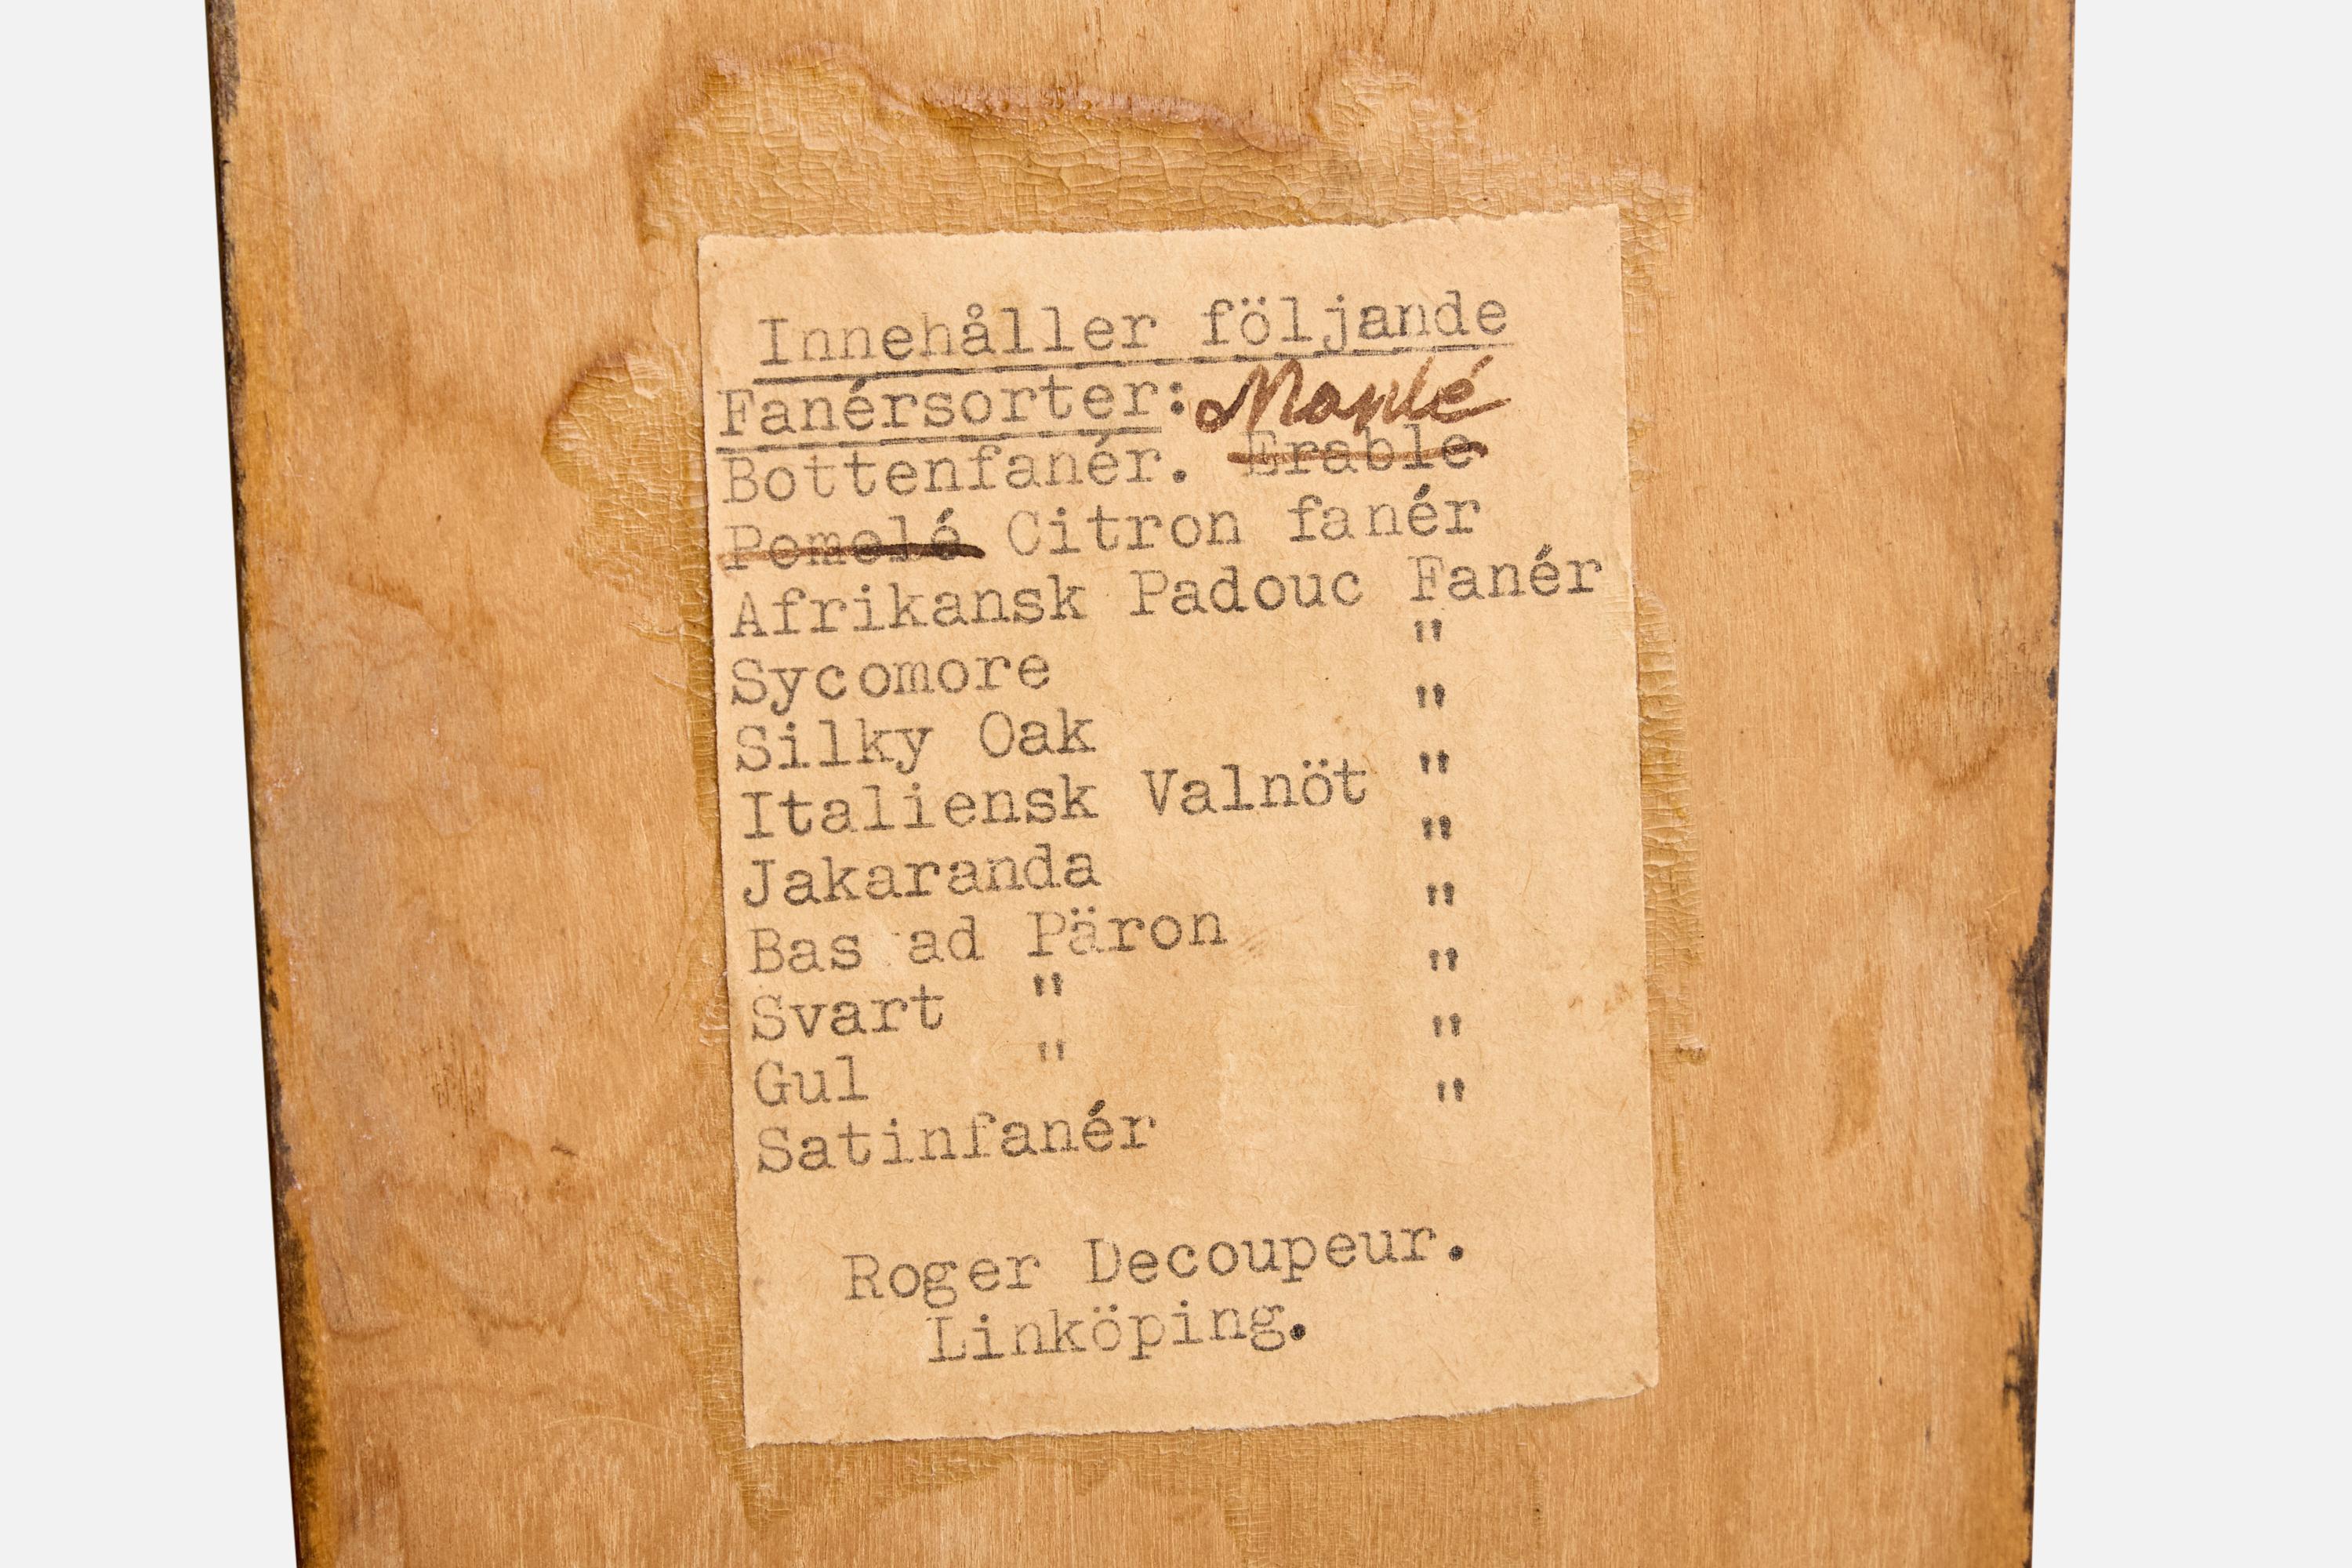 Innehåller följande
Fanérsorter: Maplé
Bottenfanér. Erable
Pomelé Citron fanér
Afrikansk Padouc Fanér
Sycomore "
Silky Oak "
Italiensk Valnöt "
Jakaranda "
Bas ad Päron "
Svart " "
Gul " "
Satinfanér "
Roger Decoupeur.
Linköping.